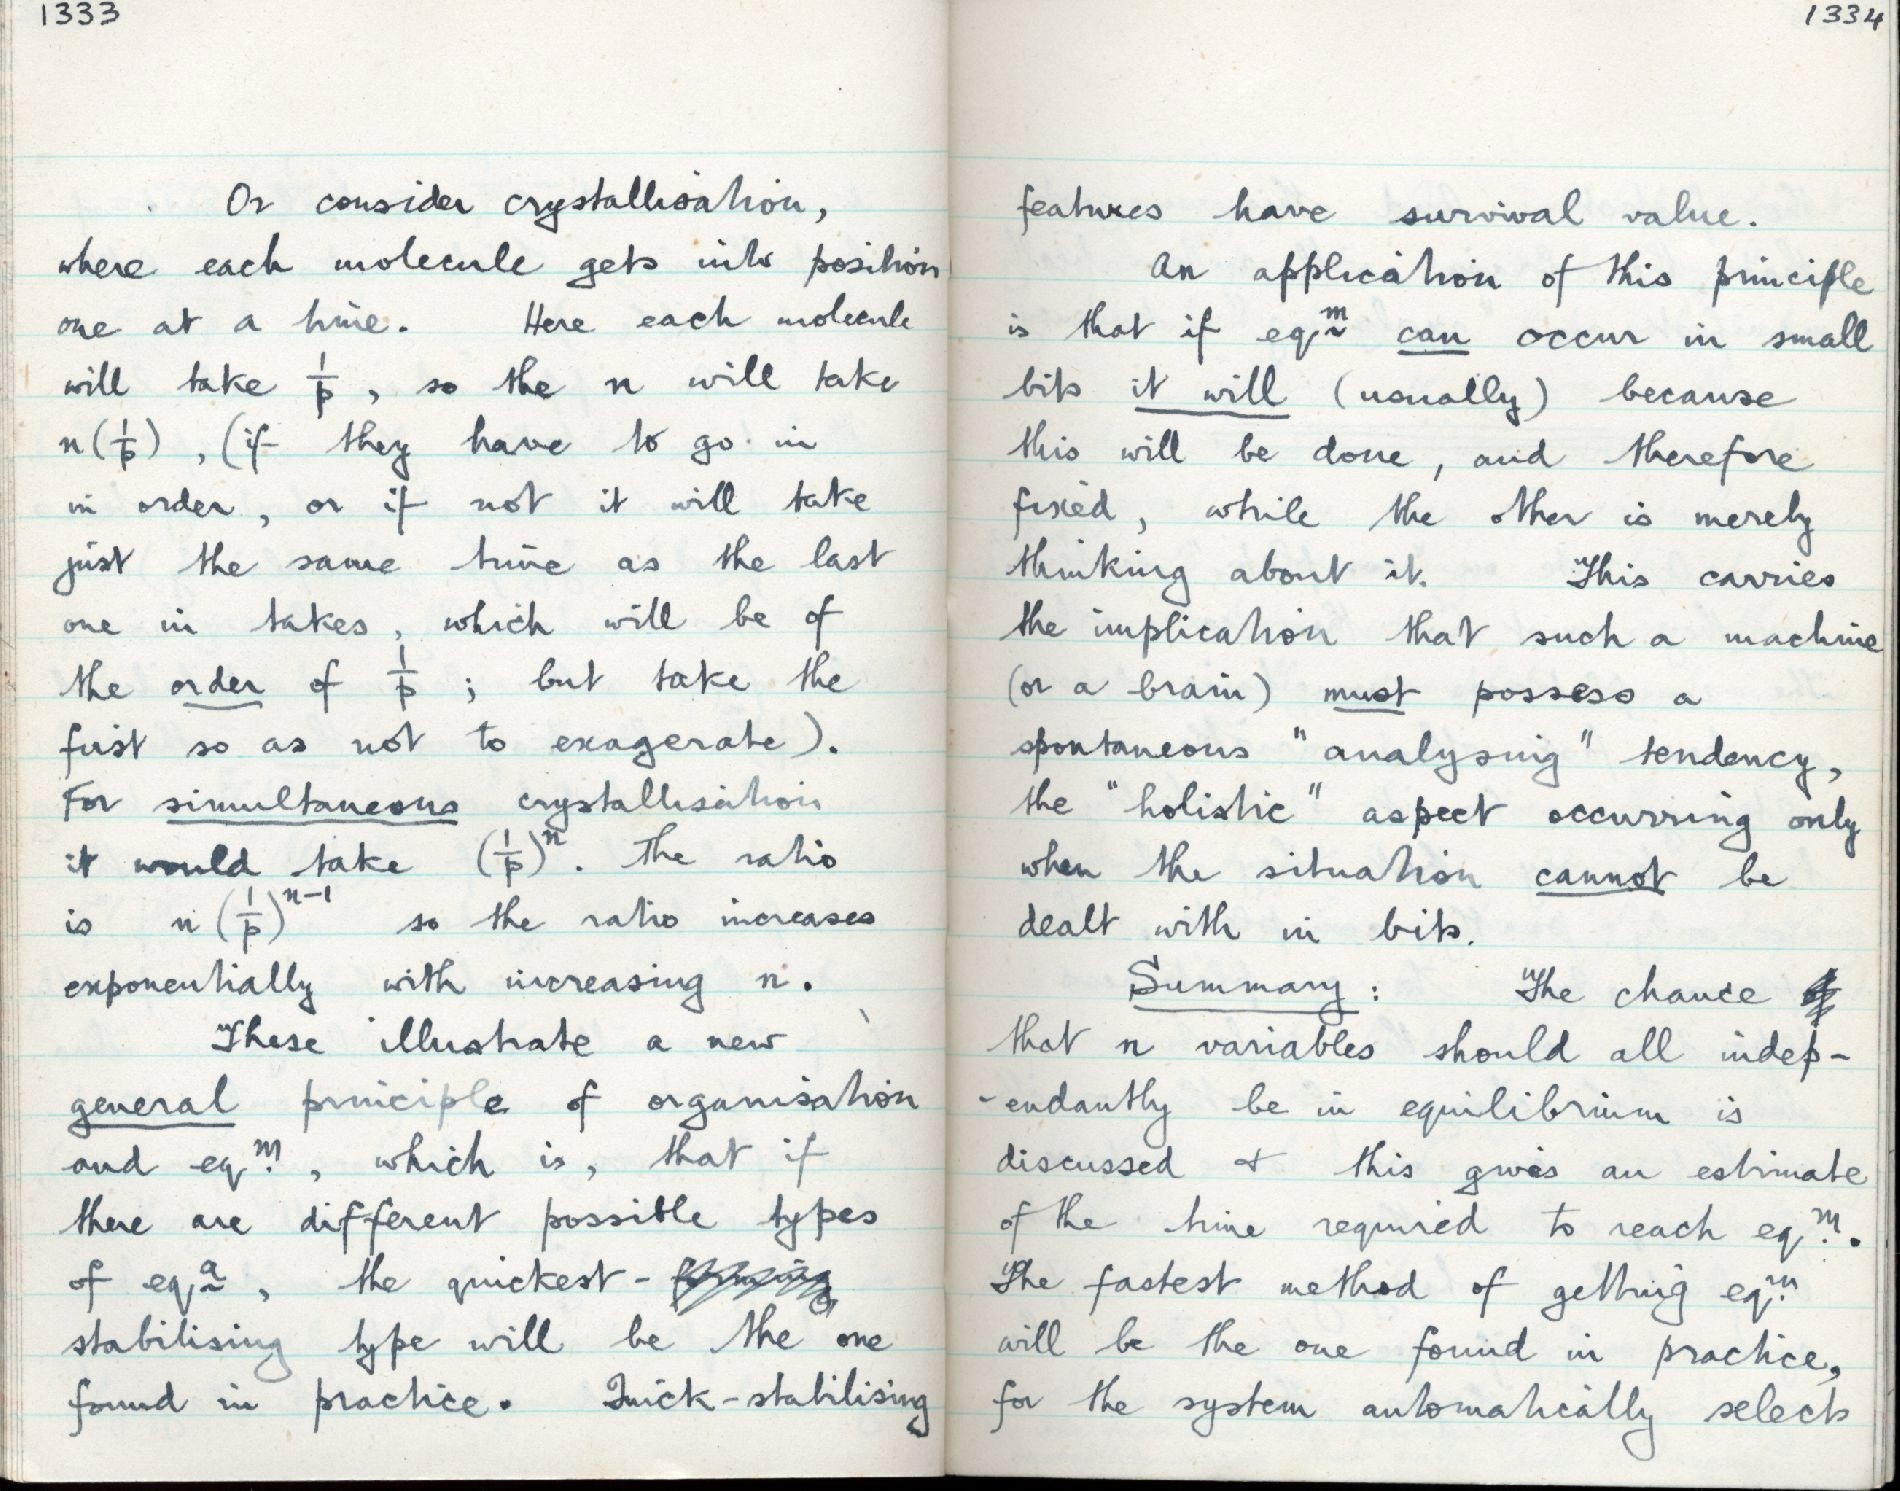 1333
Or consider crystallisation,
where each molecule gets into position
one at a time. Here each molecule
will take 1/p, so the n will take
n(1/p), (if they have to go in
in order, or if not it will take
just the same time as the last
one in takes, which will be of
the order of 1/p; but take the
first so as not to exagerate).
For simultaneous crystallisation
it would take (1/p)^n. The ratio
is n(1/p)^n-1 so the ratio increases
exponentially with increasing n.
These illustrate a new
general principle of organisation
and eq^m, which is, that if
there are different possible types
of eq^a, the quickest - forming
stabilising type will be the one
found in practice. Quick-stabilising
1334
features have survival value.
An application of this principle
is that if eq^m can occur in small
bits it will (usually) because
this will be done, and therefore
fixed, while the other is merely
thinking about it. This carries
the implication that such a machine
(or a brain) must possess a
spontaneous "analysing" tendency,
the "holistic" aspect occurring only
when the situation cannot be
dealt with in bits.
Summary: The chance of
that n variables should all indep-
-endantly be in equilibrium is
discussed & this gives an estimate
of the time required to reach eq^m.
The fastest method of getting eq^m
will be the one found in practice,
for the system automatically selects